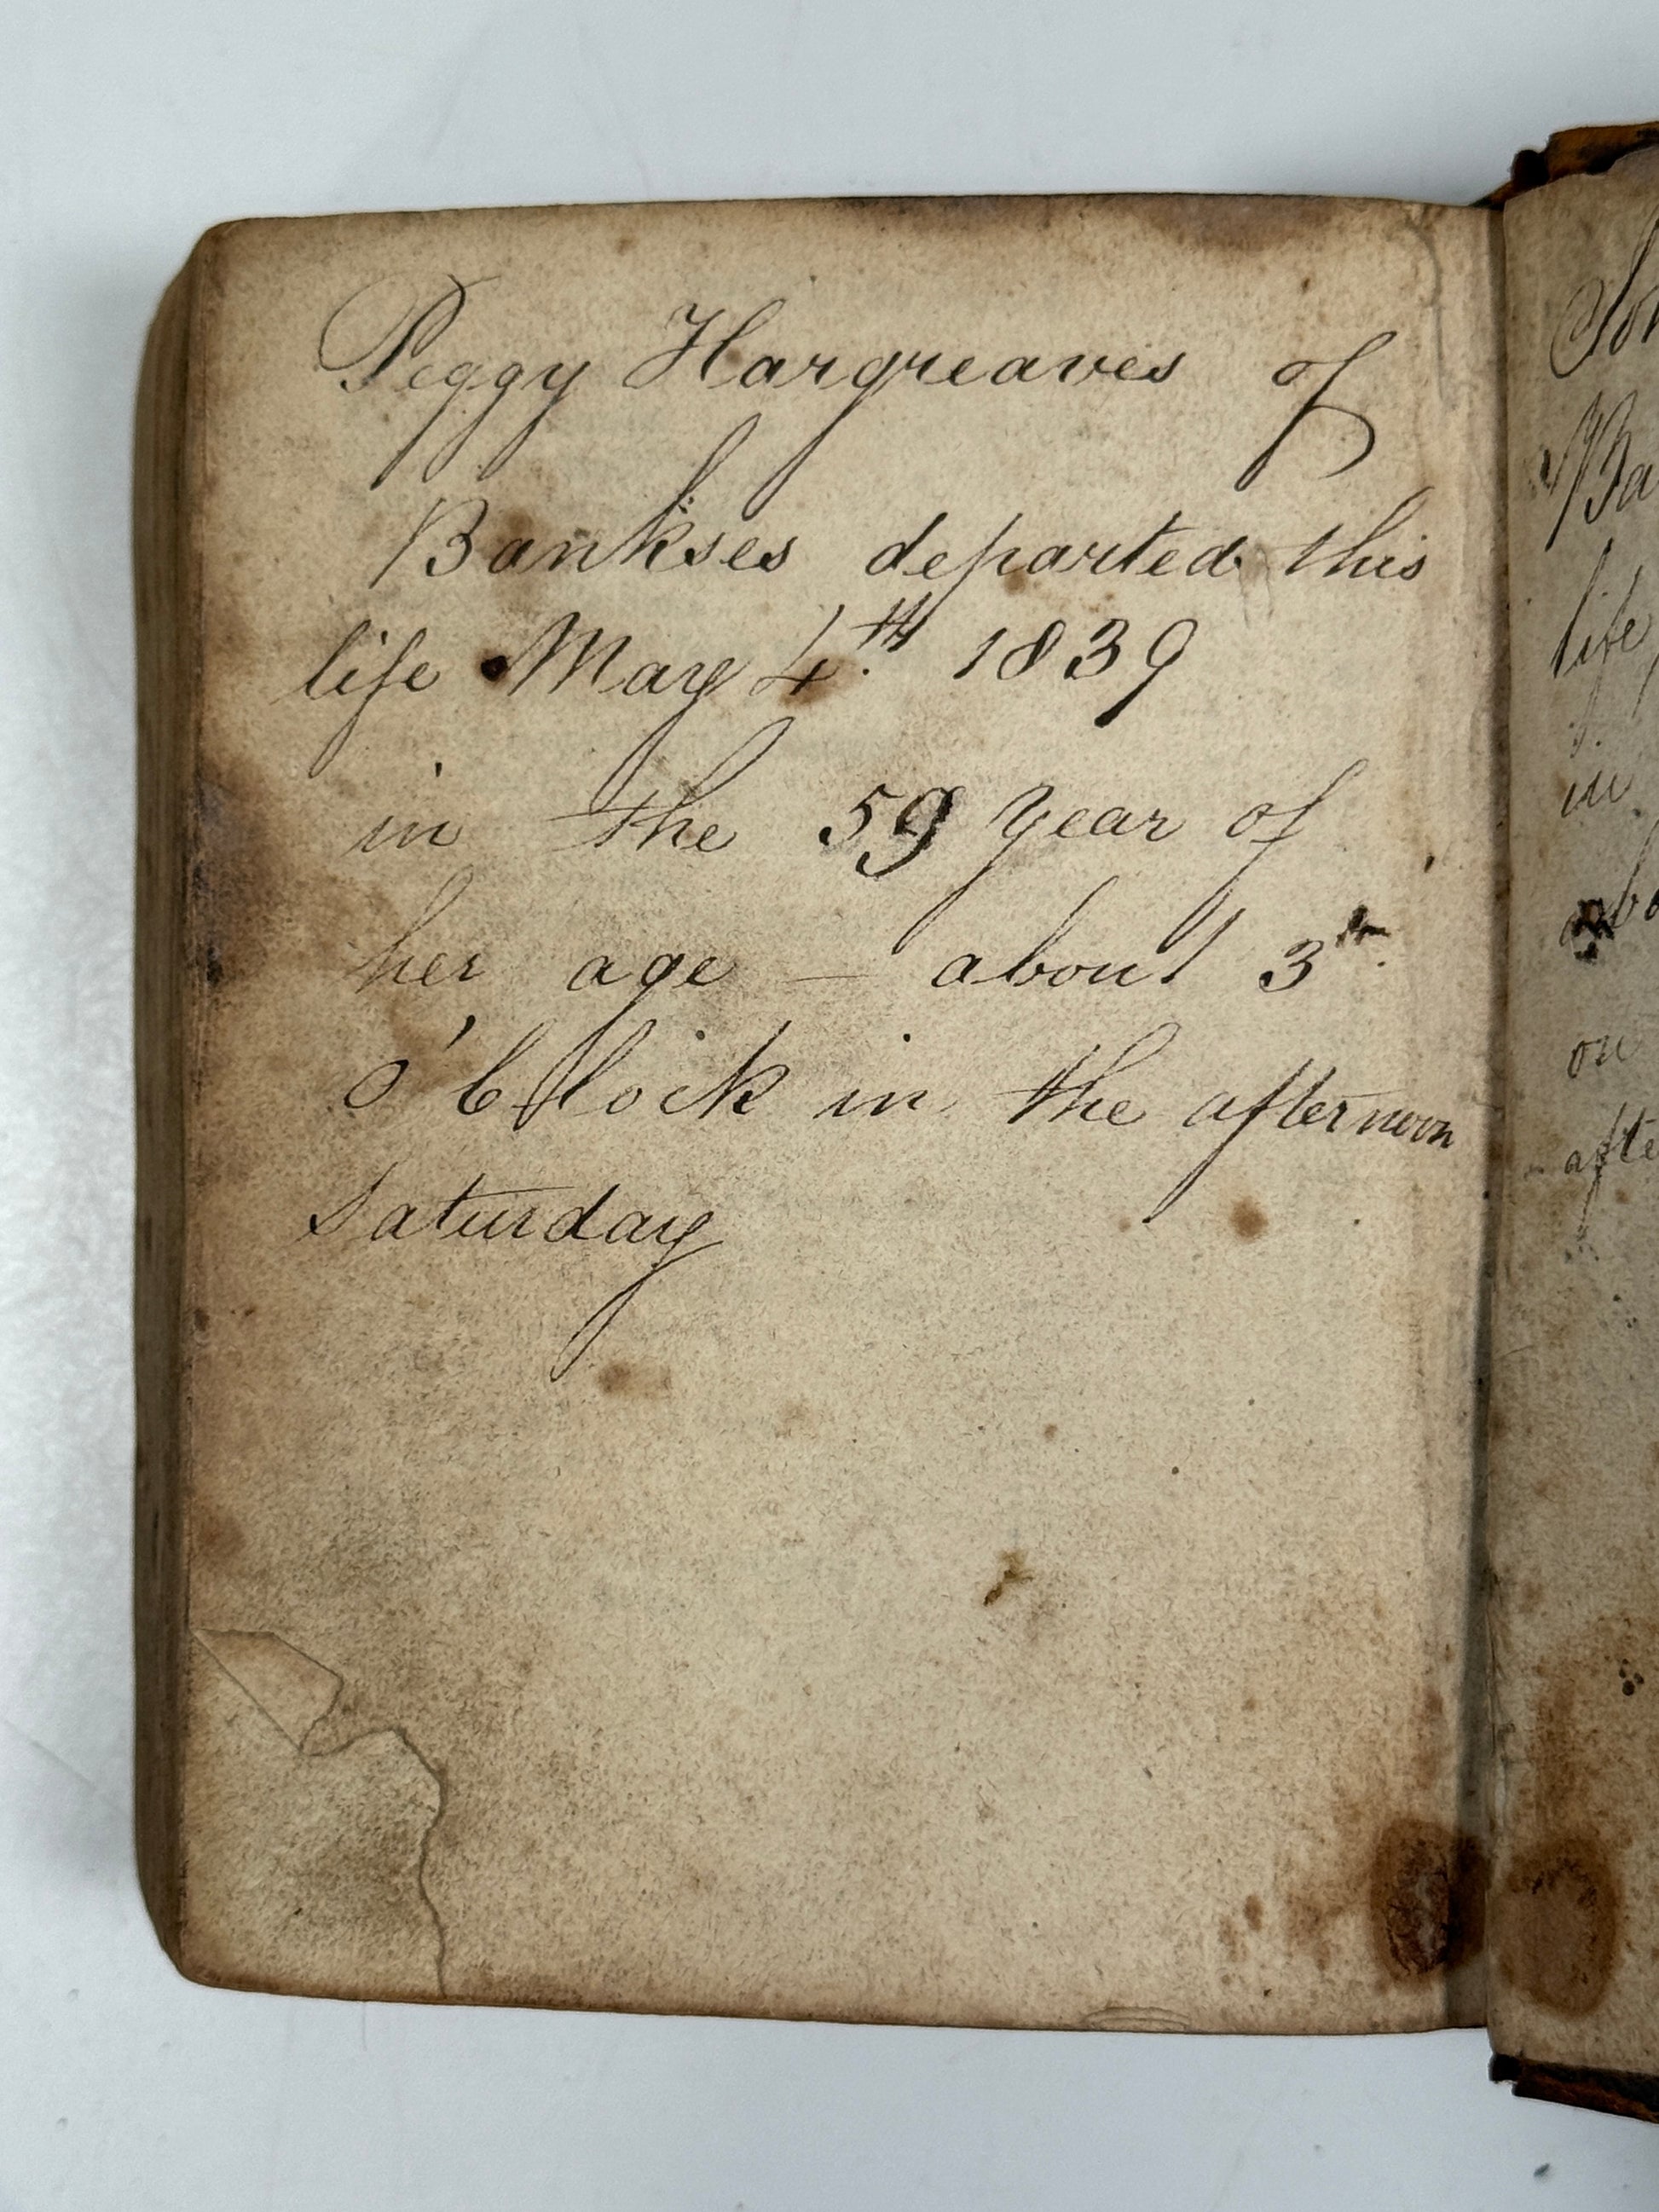 Peggy Hargreaves of
Bankses departed this
life May 4th. 1839
in the 59 year of
her age — about 3
o'Clock in the afternoon
Saturday
life
in
on